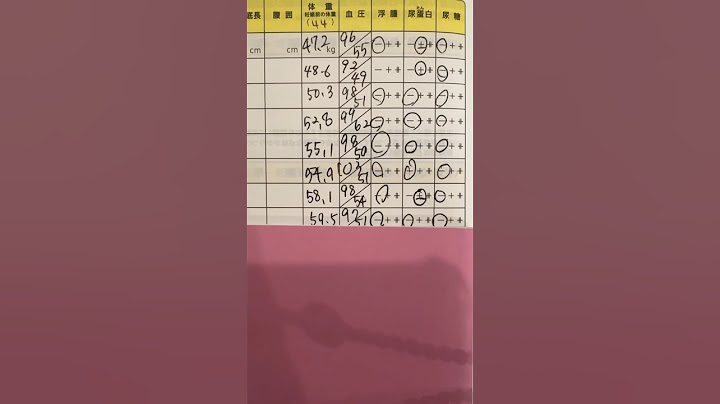 底長 腹囲 体重 血圧 浮腫 尿蛋白 尿糖
妊娠前の体重
(44)
cm cm 47.2 kg 96/55 - + + - + + - + +
48.6 92/49 - + + - + + - + +
50.3 98/51 - + + - + + - + +
52.8 94/62 - + + - + + - + +
55.1 98/50 - + + - + + - + +
54.9 103/51 - + + - + + - + +
58.1 98/54 - + + - ± + - + +
59.5 92/51 - + + - + + - + +